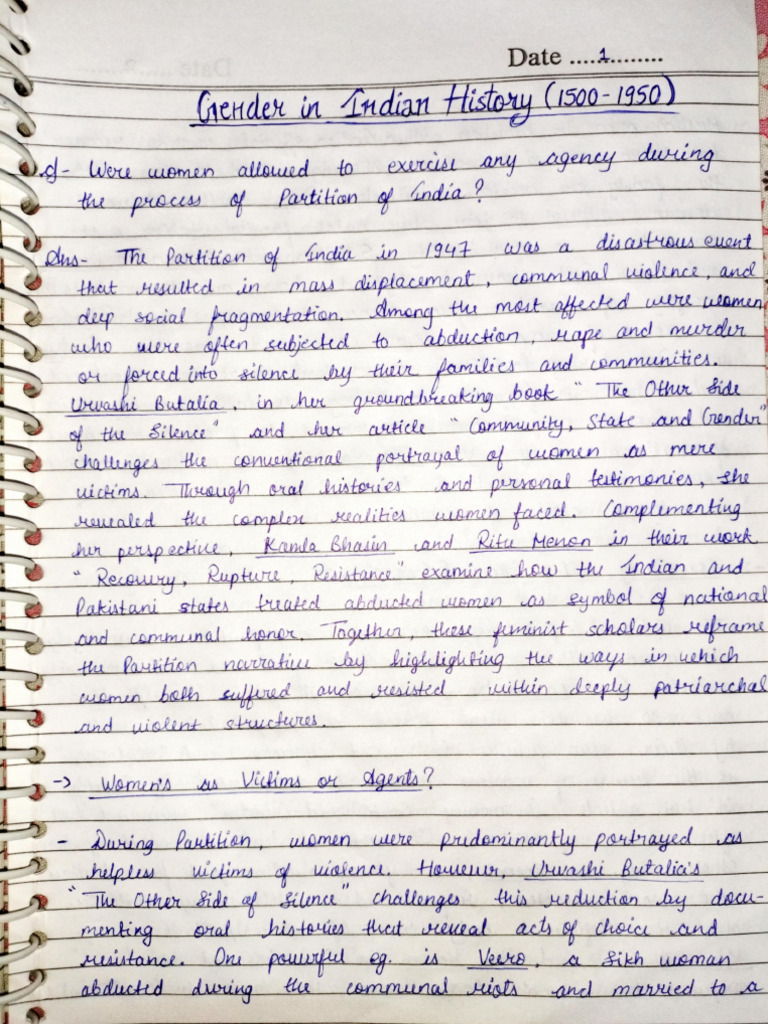 Date ....1........
Gender in Indian History (1500-1950)
Q- Were women allowed to exercise any agency during
the process of Partition of India?
Ans- The Partition of India in 1947 was a disastrous event
that resulted in mass displacement, communal violence, and
deep social fragmentation. Among the most affected were women
who were often subjected to abduction, rape and murder
or forced into silence by their families and communities.
Urvashi Butalia, in her groundbreaking book "The Other Side
of the Silence" and her article "Community, State and Gender"
challenges the conventional portrayal of women as mere
victims. Through oral histories and personal testimonies, she
revealed the complex realities women faced. Complementing
her perspective, Kamla Bhasin and Ritu Menon in their work
"Recovery, Rupture, Resistance" examine how the Indian and
Pakistani states treated abducted women as symbol of national
and communal honor. Together, these feminist scholars reframe
the Partition narrative by highlighting the ways in which
women both suffered and resisted within deeply patriarchal
and violent structures.
-> Women's as Victims or Agents?
- During Partition, women were predominantly portrayed as
helpless victims of violence. However, Urvashi Butalia's
"The Other Side of Silence" challenges this reduction by docu-
menting oral histories that reveal acts of choice and
resistance. One powerful eg. is Veero, a Sikh woman
abducted during the communal riots and married to a